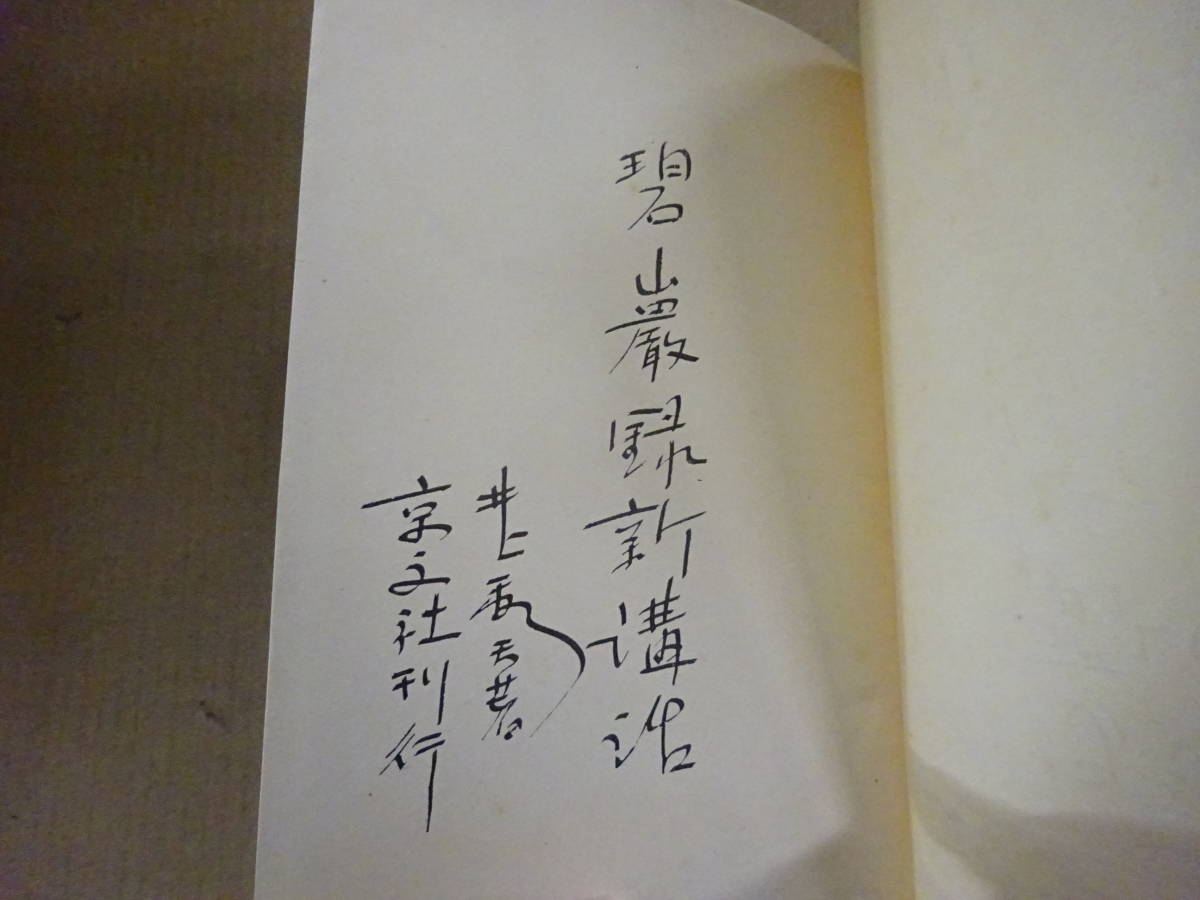 碧巌録新講話
井上秀天著
京文社刊行